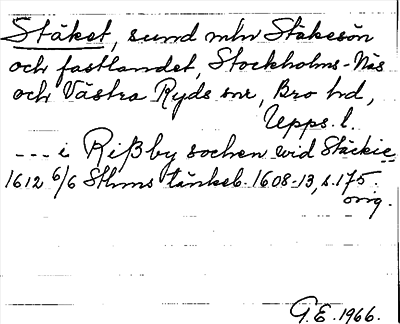 Stäket, sund mln Stäksön
och fastlandet, Stockholms-Näs
och Västra Ryds snr, Bro hd,
Upps. l.
--- i Rißby sochen wid Stäckie
1612 6/6 Sthms tänkeb. 1608-13, s. 175.
orig.
G.E. 1966.